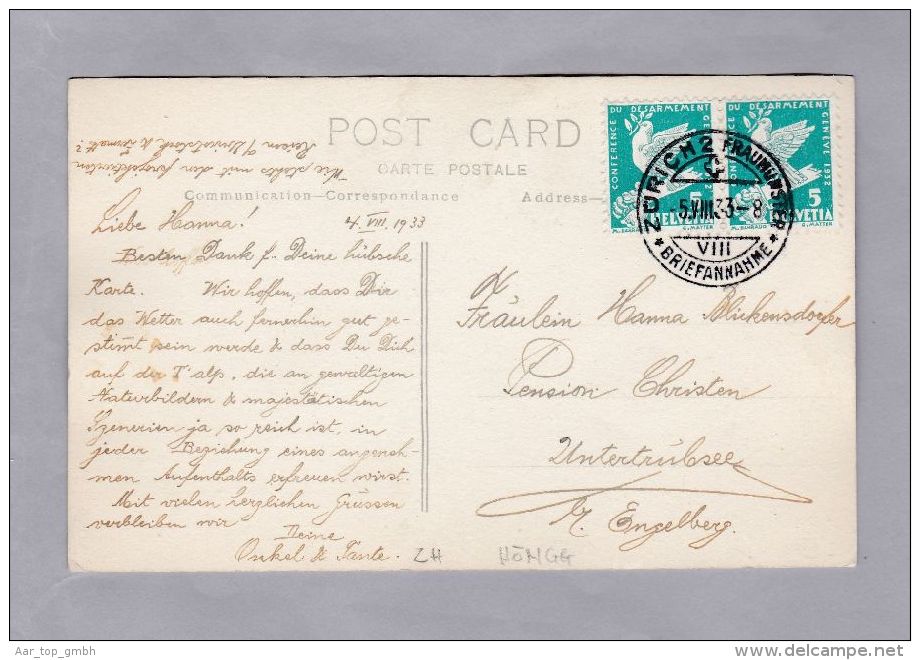 POST CARD
CARTE POSTALE
Communication—Correspondance
Address—
Wie steht's mit den projektierten
Reisen
4. VIII. 1933
Liebe Hanna!
Besten Dank f. Deine hübsche
Karte. Wir hoffen, dass Dir
das Wetter auch fernerhin gut ge-
stimmt sein werde & dass Du Dich
auf der T'alp, die an gewaltigen
Naturbildern & majestätischen
Szenerien ja so reich ist, in
jeder Beziehung eines angeneh-
men Aufenthalts erfreuen wirst.
Mit vielen herzlichen Grüssen
verbleiben wir
Deine
Onkel & Tante.
ZH HÖNGG
CONFERENCE DU DESARMEMENT GENEVE 1932
5
HELVETIA
G. MATTER
CONFERENCE DU DESARMEMENT GENEVE 1932
5
HELVETIA
G. MATTER
ZÜRICH 2 FRAUMÜNSTER
5.VIII.33–8
VIII
* BRIEFANNAHME *
Fräulein Hanna Blickensdorfer
Pension Christen
Untertrübsee
b/ Engelberg.
Aar_top_gmbh